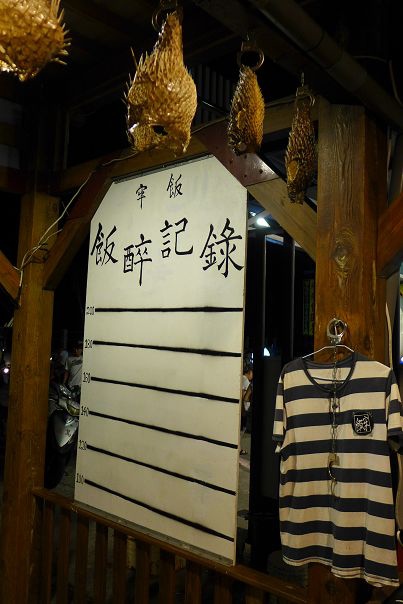 牢飯
飯醉記錄
200
180
160
140
120